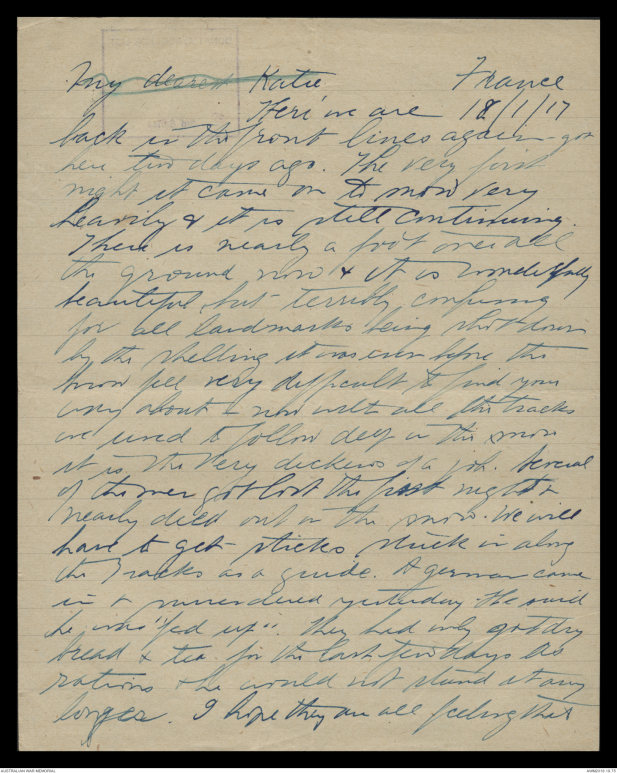 My dearest Katie France
Here we are 18/1/17
back in the front lines again - got
here two days ago. The very first
night it came on to snow very
heavily & it is still continuing.
There is nearly a foot over all
the ground now & it is wonderfully
beautiful but terribly confusing
for all landmarks being shot down
by the shelling it was even before the
snow fell very difficult to find your
way about & now with all the tracks
we used to follow deep in the snow
it is the very dickens of a job. Several
of the men got lost the first night &
nearly died out in the snow. We will
have to get sticks stuck in along
the tracks as a guide. A german came
in & surrendered yesterday. He said
he was "fed up". They had only got dry
bread & tea for the last few days as
rations & he would not stand it any
longer. I hope they are all feeling that
AUSTRALIAN WAR MEMORIAL